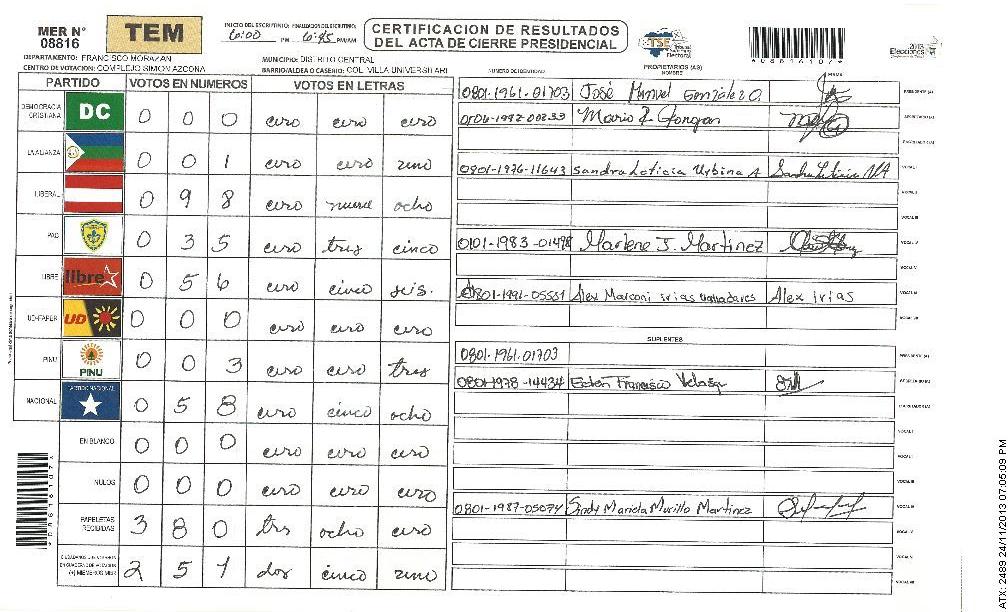 MER N° 08816
TEM
INICIO DEL ESCRUTINIO: 6:00 PM FINALIZACION DEL ESCRUTINIO: 6:45 PM/AM
CERTIFICACION DE RESULTADOS
DEL ACTA DE CIERRE PRESIDENCIAL
TSE
2013
Elecciones
DEPARTAMENTO: FRANCISCO MORAZAN
MUNICIPIO: DISTRITO CENTRAL
CENTRO DE VOTACION: COMPLEJO SIMON AZCONA
BARRIO/ALDEA O CASERIO: COL VILLA UNIVERSITARI
PARTIDO VOTOS EN NUMEROS VOTOS EN LETRAS
NUMERO DE IDENTIDAD
PROPIETARIOS (AS)
NOMBRE
FIRMA
DEMOCRACIA CRISTIANA DC 0 0 0 cero cero cero
LA ALIANZA 0 0 1 cero cero uno
LIBERAL 0 9 8 cero nueve ocho
PAC 0 3 5 cero tres cinco
LIBRE libre 0 5 6 cero cinco seis.
UD-FAPER UD 0 0 0 cero cero cero
PINU PINU 0 0 3 cero cero tres
NACIONAL PARTIDO NACIONAL 0 5 8 cero cinco ocho
EN BLANCO 0 0 0 cero cero cero
NULOS 0 0 0 cero cero cero
PAPELETAS RECIBIDAS 3 8 0 tres ocho cero
(+) MIEMBROS MER 2 5 1 dos cinco uno
0801-1961-01703 José Manuel Gonzalez O. PRESIDENTE (A)
Mario
SECRETARIO (A)
0801-1976-11643 Sandra Leticia Urbina A VOCAL I
VOCAL II
VOCAL III
0101-1983-01498 Marlene J. Martinez VOCAL IV
VOCAL V
0801-1991-05551 Alex Marconi irias Alex irias VOCAL VI
VOCAL VII
SUPLENTES
0801-1961-01703 PRESIDENTE (A)
0801-1978-14434 Francisco
VOCAL I
VOCAL II
0801-1987-05074 Sindy Mariela Murillo Martinez
ATX: 2489 24/11/2013 07:05:09 PM